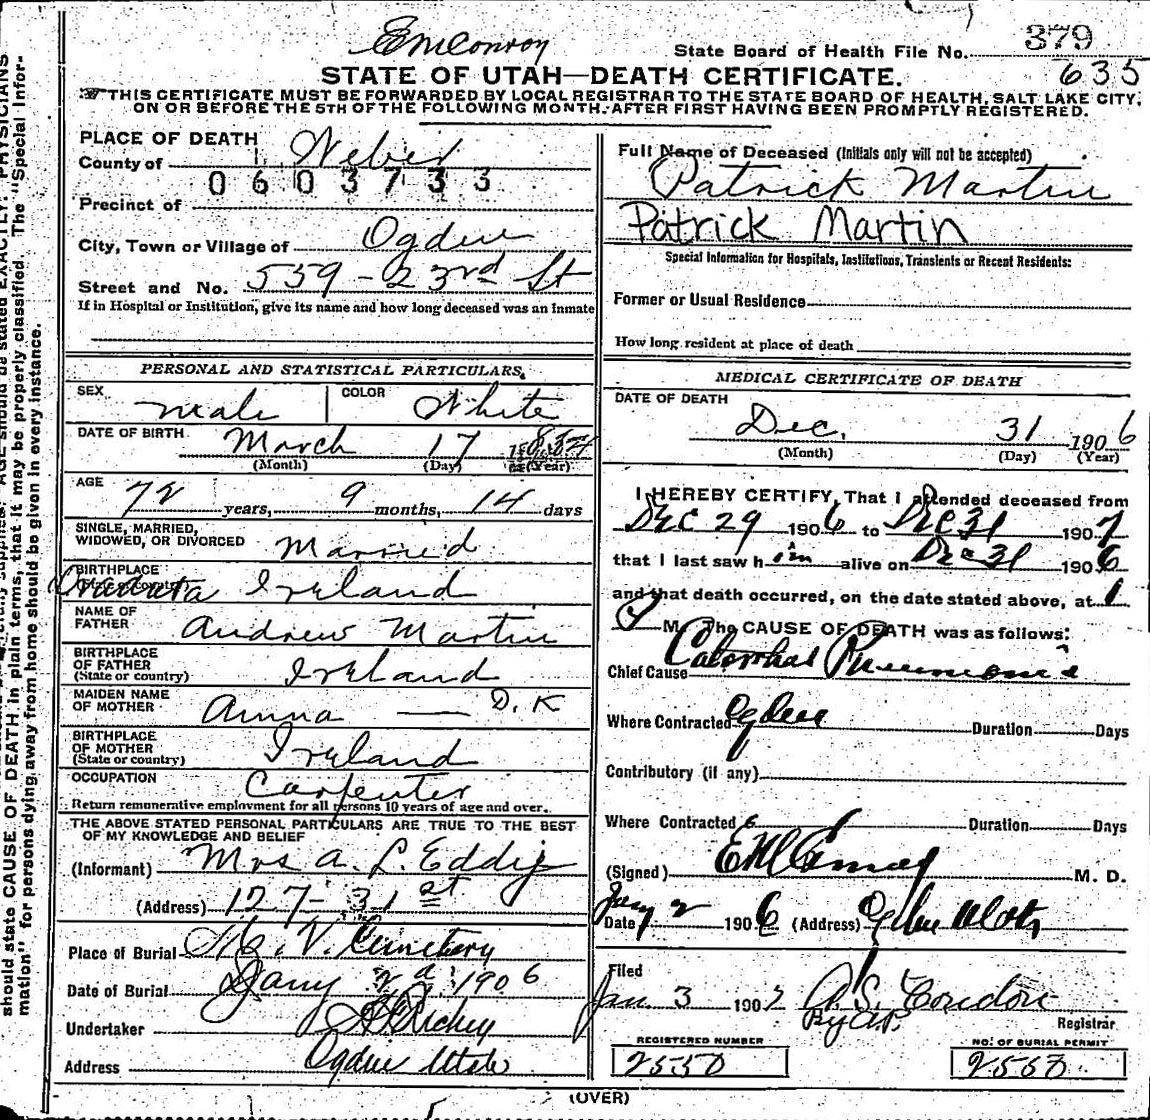 E M Conroy
State Board of Health File No. 379
635
STATE OF UTAH—DEATH CERTIFICATE.
THIS CERTIFICATE MUST BE FORWARDED BY LOCAL REGISTRAR TO THE STATE BOARD OF HEALTH, SALT LAKE CITY,
ON OR BEFORE THE 5TH OF THE FOLLOWING MONTH. AFTER FIRST HAVING BEEN PROMPTLY REGISTERED.
PLACE OF DEATH
County of Weber
0603733
Precinct of
City, Town or Village of Ogden
Street and No. 559-23rd St
If in Hospital or Institution, give its name and how long deceased was an inmate
PERSONAL AND STATISTICAL PARTICULARS.
SEX male COLOR White
DATE OF BIRTH March 17
(Month) (Day) (Year)
AGE 72 years, 9 months, 14 days
SINGLE, MARRIED,
WIDOWED, OR DIVORCED Married
BIRTHPLACE
(State or country) Ireland
NAME OF
FATHER Andrew Martin
BIRTHPLACE
OF FATHER
(State or country) Ireland
MAIDEN NAME
OF MOTHER Anna — D.K
BIRTHPLACE
OF MOTHER
(State or country) Ireland
OCCUPATION Carpenter
Return remunerative employment for all persons 10 years of age and over.
THE ABOVE STATED PERSONAL PARTICULARS ARE TRUE TO THE BEST
OF MY KNOWLEDGE AND BELIEF
(Informant) Mrs A. L. Eddy
(Address) 127-31st
Place of Burial Cemetery
Date of Burial Jany 2d 1906
Undertaker Richey
Address Ogden Utah
Full Name of Deceased (Initials only will not be accepted)
Patrick Martin
Patrick Martin
Special Information for Hospitals, Institutions, Transients or Recent Residents:
Former or Usual Residence
How long resident at place of death
MEDICAL CERTIFICATE OF DEATH
DATE OF DEATH
Dec. 31 1906
(Month) (Day) (Year)
I HEREBY CERTIFY, That I attended deceased from
Dec 29 1906 to Dec 31 1907
that I last saw him alive on Dec 31 1906
and that death occurred, on the date stated above, at 1
P M. The CAUSE OF DEATH was as follows:
Chief Cause Catarrhal Pneumonia
Where Contracted Ogden Duration Days
Contributory (if any)
Where Contracted Duration Days
(Signed) E M Conroy M. D.
Date Jany 2 1906 (Address) Ogden Utah
Filed
Jan 3 1907 A.S. Condon
By Registrar
REGISTERED NUMBER
2550
NO. OF BURIAL PERMIT
2550
(OVER)
should state CAUSE OF DEATH in plain terms, that it may be properly classified. The "Special Infor-
mation" for persons dying away from home should be given in every instance.